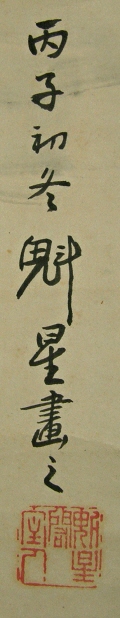 丙子初冬魁星畫之